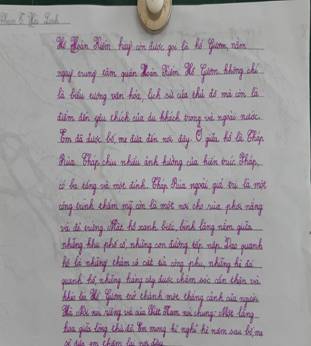 Hồ Hoàn Kiếm hay còn được gọi là hồ Gươm, nằm
ngay trung tâm quận Hoàn Kiếm. Hồ Gươm không chỉ
là biểu tượng văn hóa, lịch sử của thủ đô mà còn là
điểm đến yêu thích của du khách trong và ngoài nước.
Em đã được bố, mẹ đưa đến nơi đây. Ở giữa hồ là Tháp
Rùa. Tháp chịu nhiều ảnh hưởng của kiến trúc Pháp,
có ba tầng và một đỉnh. Tháp Rùa ngoài giá trị là một
công trình thẩm mỹ còn là một nơi cho rùa phơi nắng
và đẻ trứng. Mặt hồ xanh biếc, bình lặng nằm giữa
những khu phố cổ, những con đường tấp nập. Dạo quanh
hồ là những thảm cỏ cắt tỉa công phu, những ghế đá
quanh hồ, những hàng cây được chăm sóc cẩn thận và
khiến Hồ Gươm trở thành một thắng cảnh của người
Hà Nội nói riêng và của Việt Nam nói chung. Một lẵng
hoa giữa lòng thủ đô. Em mong kì nghỉ hè năm sau bố, mẹ
sẽ đưa em thăm lại nơi đây.